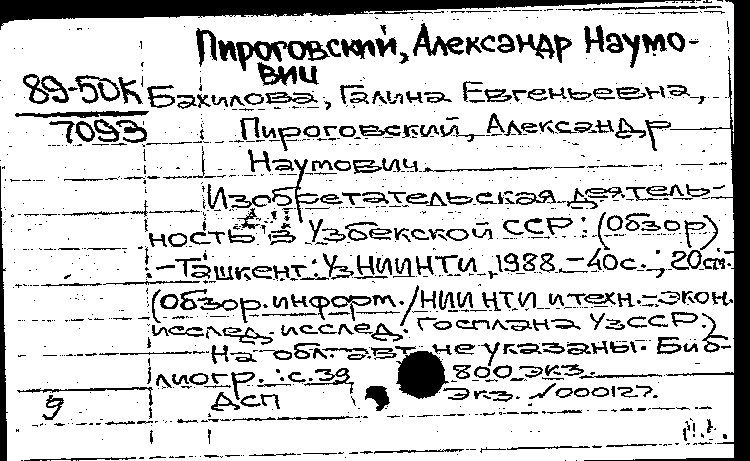 Пироговский, Александр Наумо-
вич
89-50К
7093
Бахилова, Галина Евгеньевна,
Пироговский, Александр
Наумович.
Изобретательская деятель-
ность в Узбекской ССР: (Обзор)
.-Ташкент: УзНИИНТИ, 1988.-40с.; 20см.-
(Обзор. информ./НИИ НТИ и техн.-экон.
исслед. исслед. Госплана УзССР.)
На обл. авт. не указаны. Биб-
лиогр.: с.39 800 экз.
ДСП Экз. √000127.
9